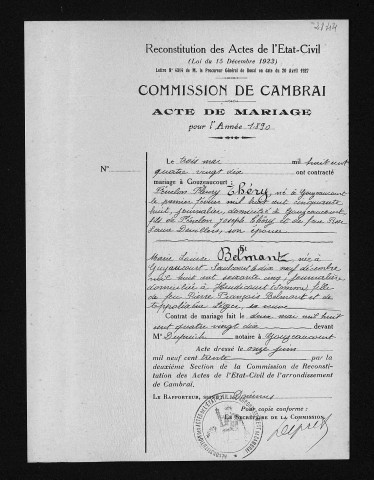 2144
Reconstitution des Actes de l'Etat-Civil
(Loi du 15 Décembre 1923)
Lettre N° 6314 de M. le Procureur Général de Douai en date du 20 Avril 1927
COMMISSION DE CAMBRAI
ACTE DE MARIAGE
pour l'Année 1890
Le trois mai mil huit cent
N° quatre vingt dix ont contracté
mariage à Gouzeaucourt :
Fénelon Fleury Théry, né à Gouzeaucourt
le premier février mil huit cent cinquante
huit, journalier, domicilié à Gouzeaucourt,
fils de Fénelon Joseph Théry et de feue
son épouse
et
Marie Louise Belmant née à
Gouzeaucourt le dix neuf décembre
mil huit cent soixante cinq, journalière,
domiciliée à Heudicourt (Somme), fille
de feu Pierre François Belmant et de
Hippolitine sa veuve
Contrat de mariage fait le deux mai mil huit
cent quatre vingt dix devant
Me notaire à Gouzeaucourt
Acte dressé le onze juin
mil neuf cent trente par la
deuxième Section de la Commission de Reconsti-
tution des Actes de l'Etat-Civil de l'arrondissement
de Cambrai.
LE RAPPORTEUR, SIGNÉ :
Pour copie conforme :
LE SECRÉTAIRE DE LA COMMISSION